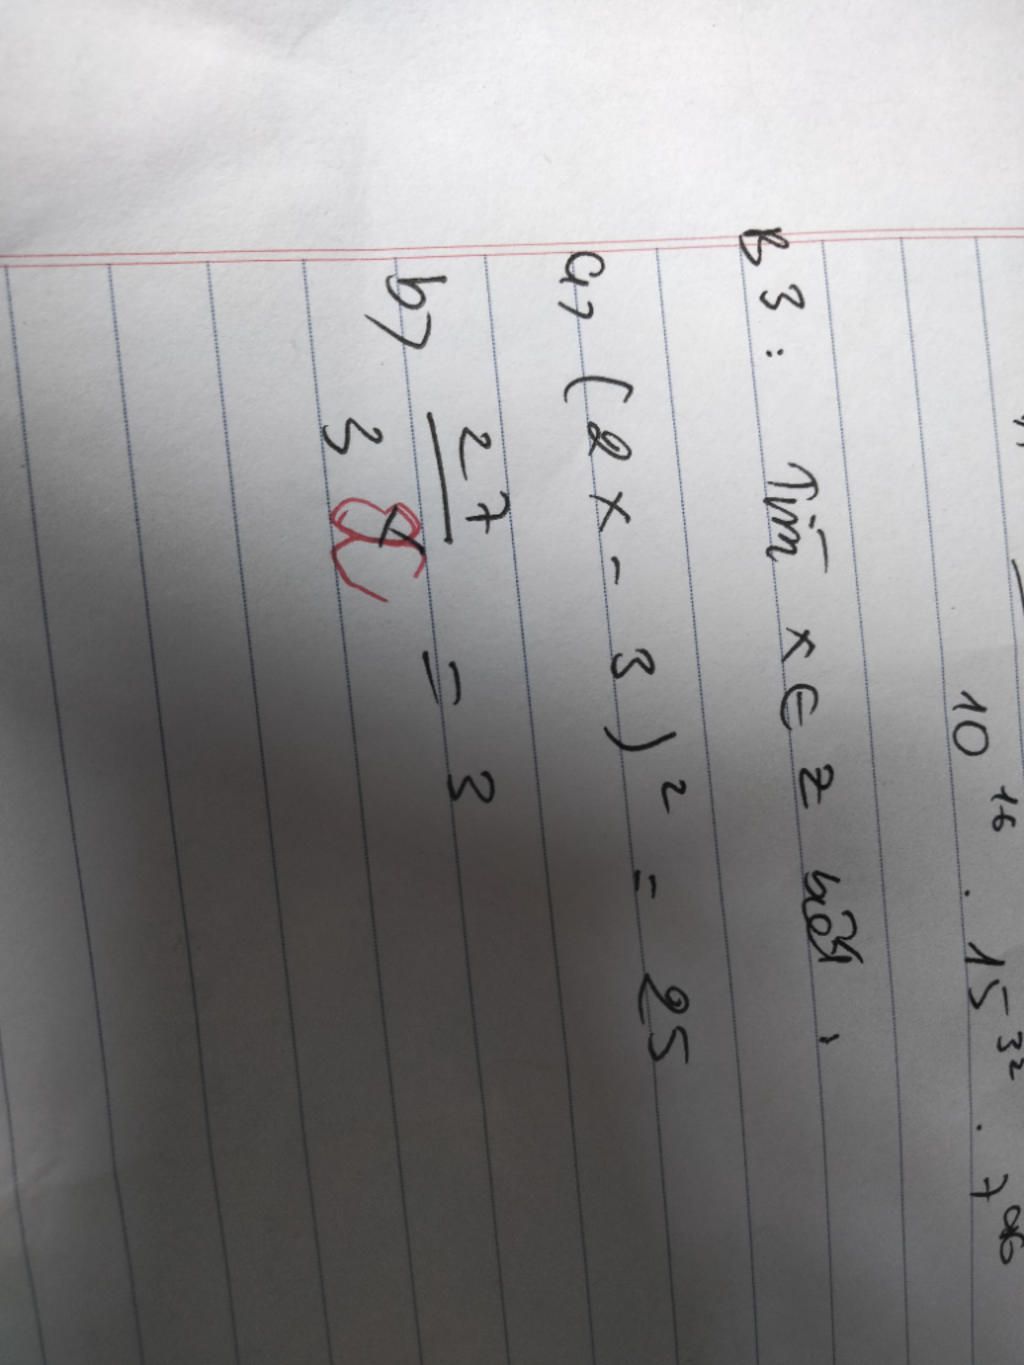 10¹⁶ . 15³² . 7⁹⁶
B3 : Tìm x ∈ Z biết :
a, (2x - 3)² = 25
b, 27/3ˣ = 3